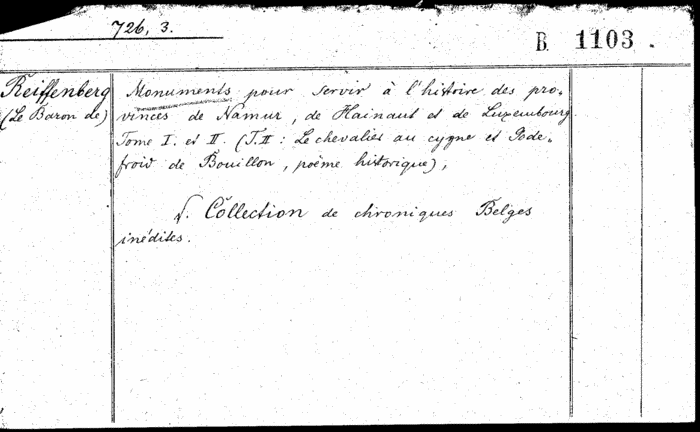 726, 3.
B. 1103.
Reiffenberg
(Le Baron de)
Monuments pour servir à l'histoire des pro-
vinces de Namur, de Hainaut et de Luxembourg
Tome I. et II. (T. II : Le chevalier au cygne et Gode-
froid de Bouillon, poème historique),
V. Collection de chroniques Belges
inédites.